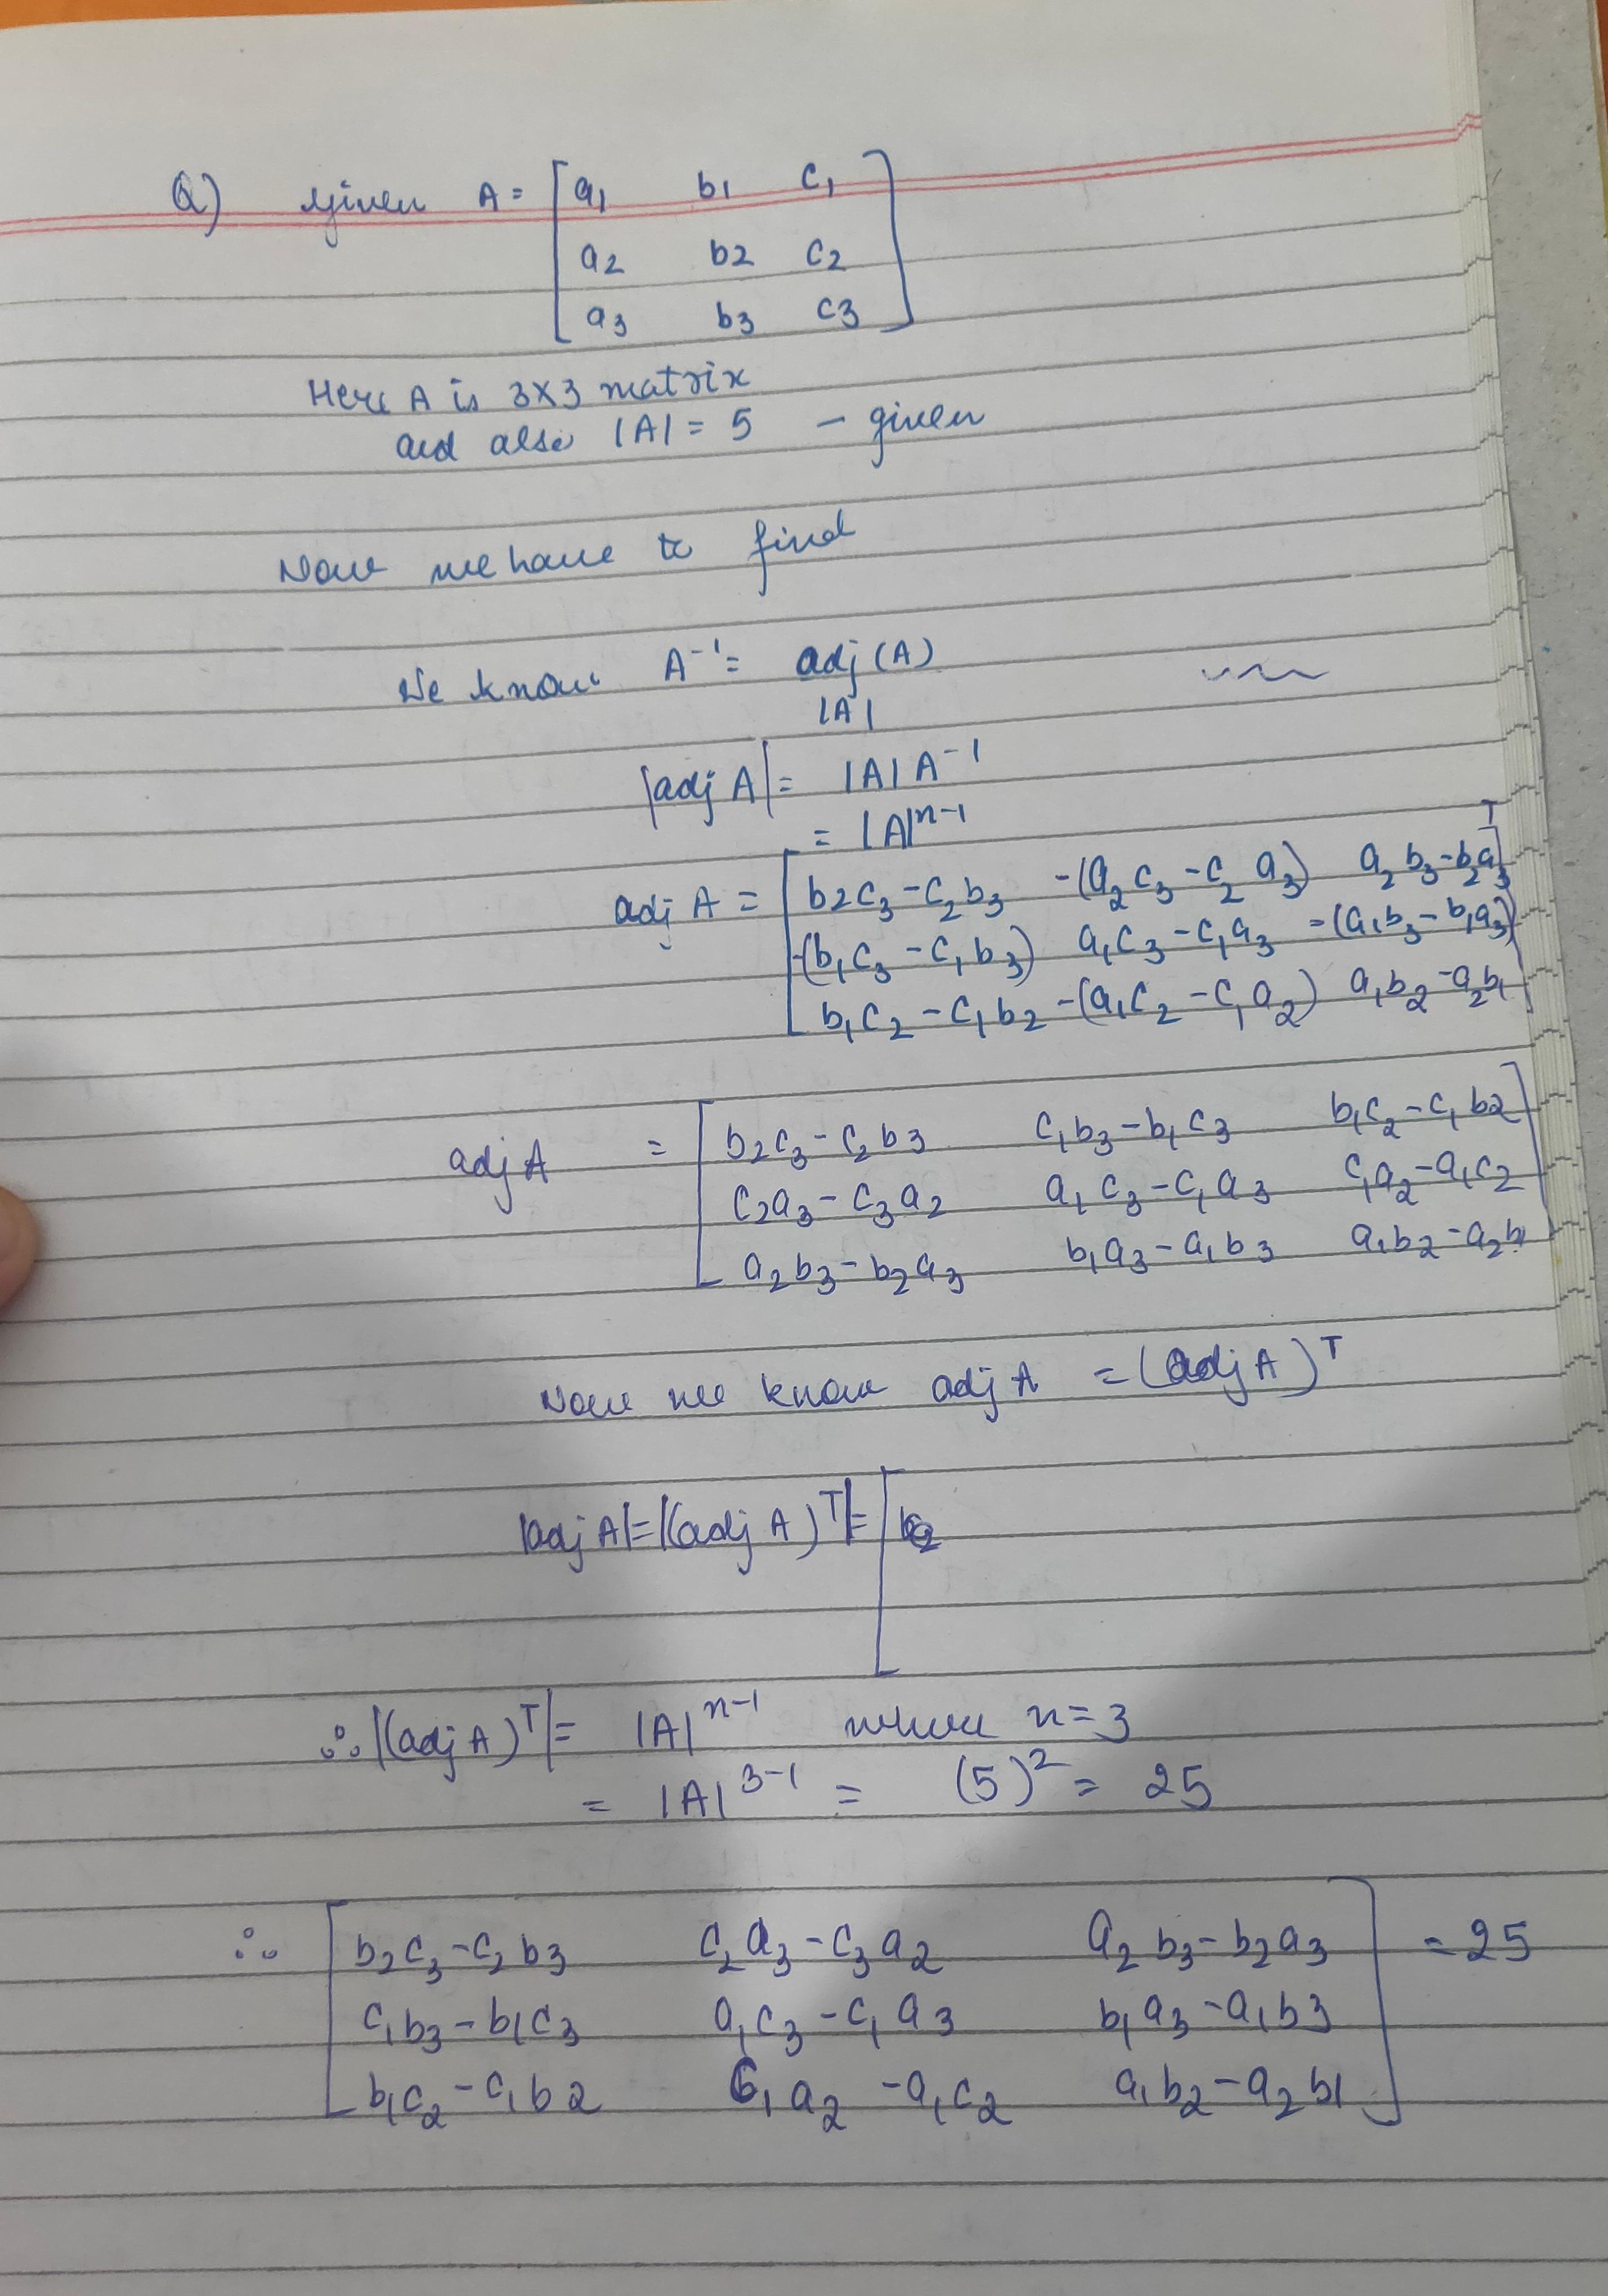 Q) Given A = [a₁ b₁ c₁
a₂ b₂ c₂
a₃ b₃ c₃]
Here A is 3×3 matrix
and also |A| = 5 – given
Now we have to find
We know A⁻¹ = adj (A)
|A|
|adj A| = |A| A⁻¹
= |A|ⁿ⁻¹
adj A = [b₂c₃ - c₂b₃ -(a₂c₃ - c₂a₃) a₂b₃ - b₂a₃]ᵀ
-(b₁c₃ - c₁b₃) a₁c₃ - c₁a₃ -(a₁b₃ - b₁a₃)
b₁c₂ - c₁b₂ -(a₁c₂ - c₁a₂) a₁b₂ - a₂b₁
adj A = [b₂c₃ - c₂b₃ c₁b₃ - b₁c₃ b₁c₂ - c₁b₂
c₂a₃ - c₃a₂ a₁c₃ - c₁a₃ c₁a₂ - a₁c₂
a₂b₃ - b₂a₃ b₁a₃ - a₁b₃ a₁b₂ - a₂b₁]
Now we know adj A = (adj A)ᵀ
|adj A| = |(adj A)ᵀ| = [
∴ |(adj A)ᵀ| = |A|ⁿ⁻¹ where n = 3
= |A|³⁻¹ = (5)² = 25
∴ [b₂c₃ - c₂b₃ c₂a₃ - c₃a₂ a₂b₃ - b₂a₃] = 25
c₁b₃ - b₁c₃ a₁c₃ - c₁a₃ b₁a₃ - a₁b₃
b₁c₂ - c₁b₂ c₁a₂ - a₁c₂ a₁b₂ - a₂b₁]